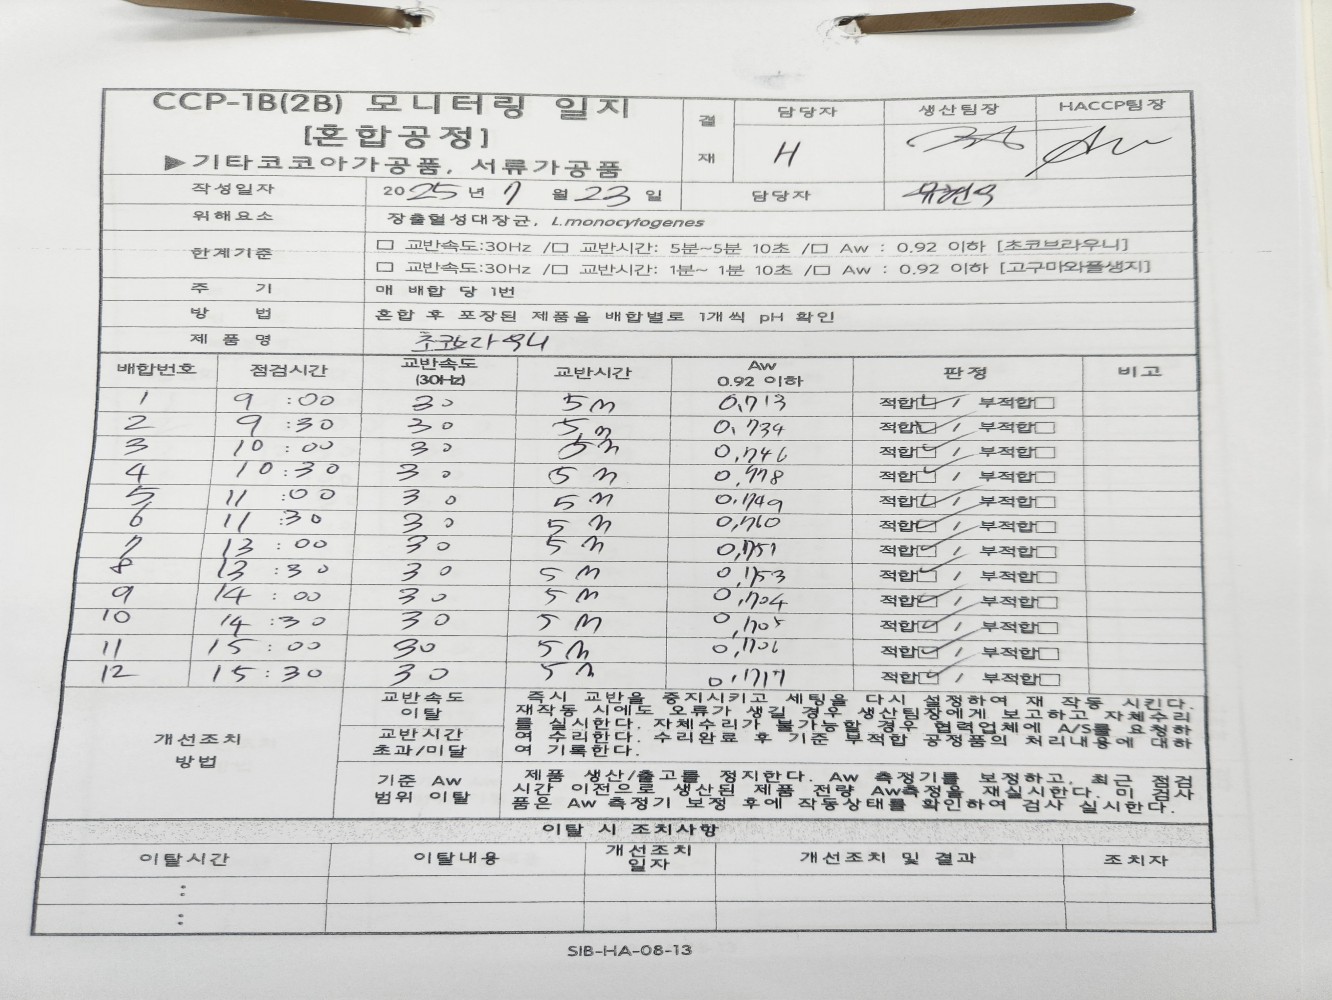 CCP-1B(2B) 모니터링 일지
[혼합공정]
▶기타코코아가공품, 서류가공품
결재 담당자 생산팀장 HACCP팀장
H
작성일자 2025년 7월 23일 담당자
위해요소 장출혈성대장균, L.monocytogenes
한계기준 □ 교반속도:30Hz /□ 교반시간: 5분~5분 10초 /□ Aw : 0.92 이하 [초코브라우니]
□ 교반속도:30Hz /□ 교반시간: 1분~ 1분 10초 /□ Aw : 0.92 이하 [고구마와플생지]
주 기 매 배합 당 1번
방 법 혼합 후 포장된 제품을 배합별로 1개씩 pH 확인
제 품 명 초코브라우니
배합번호 점검시간 교반속도 (30Hz) 교반시간 Aw 0.92 이하 판정 비고
1 9 :00 30 5m 0.713 적합☑ / 부적합□
2 9 :30 30 5m 0.734 적합☑ / 부적합□
3 10 :00 30 5m 0.746 적합☑ / 부적합□
4 10 :30 30 5m 적합☑ / 부적합□
5 11 :00 30 5m 0.749 적합☑ / 부적합□
6 11 :30 30 5m 0.760 적합☑ / 부적합□
7 13 :00 30 5m 0.751 적합☑ / 부적합□
8 13 :30 30 5m 0.753 적합☑ / 부적합□
9 14 :00 30 5m 0.704 적합☑ / 부적합□
10 14 :30 30 5m 0.705 적합☑ / 부적합□
11 15 :00 30 5m 0.706 적합☑ / 부적합□
12 15 :30 30 5m 0.717 적합☑ / 부적합□
개선조치 방법
교반속도 이탈
교반시간 초과/미달
즉시 교반을 중지시키고 세팅을 다시 설정하여 재 작동 시킨다.
재작동 시에도 오류가 생길 경우 생산팀장에게 보고하고 자체수리
를 실시한다. 자체수리가 불가능할 경우 협력업체에 A/S를 요청하
여 수리한다. 수리완료 후 기준 부적합 공정품의 처리내용에 대하
여 기록한다.
기준 Aw 범위 이탈
제품 생산/출고를 정지한다. Aw 측정기를 보정하고, 최근 점검
시간 이전으로 생산된 제품 전량 Aw측정을 재실시한다. 미 검사
품은 Aw 측정기 보정 후에 작동상태를 확인하여 검사 실시한다.
이탈 시 조치사항
이탈시간 이탈내용 개선조치 일자 개선조치 및 결과 조치자
:
:
SIB-HA-08-13